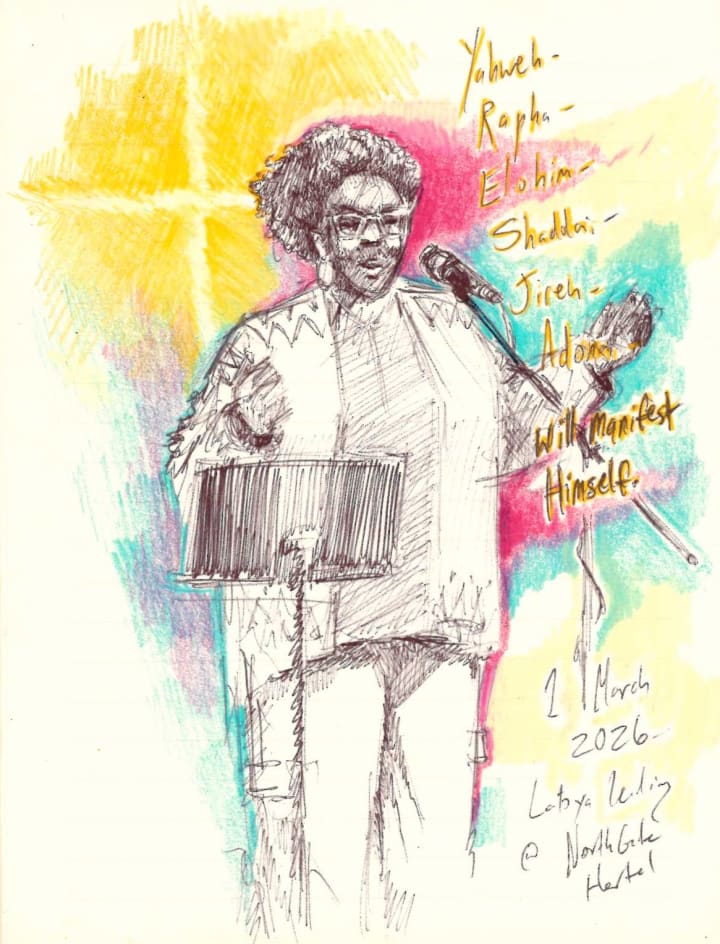 Yahweh-
Rapha-
Elohim-
Shaddai-
Jireh-
Adonai-
Will Manifest
Himself.
1 March
2026-
Leading
@ NorthGate
Hertel